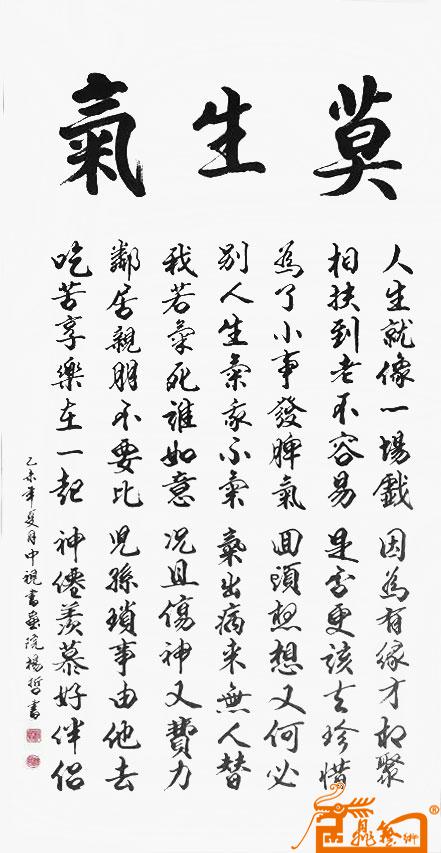 莫生氣
人生就像一場戲 因為有緣才相聚
相扶到老不容易 是否更該去珍惜
為了小事發脾氣 回頭想想又何必
別人生氣我不氣 氣出病來無人替
我若氣死誰如意 況且傷神又費力
鄰居親朋不要比 兒孫瑣事由他去
吃苦享樂在一起 神僊羨慕好伴侶
乙未年夏月中視書藝院楊哲書